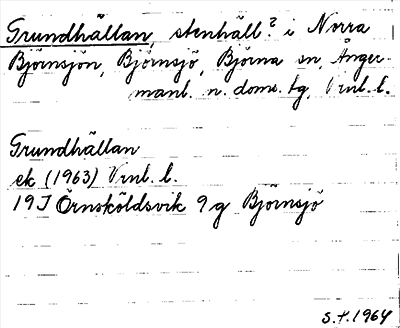 Grundhällan, stenhäll? i Norra
Björnsjön, Björnsjö, Björna sn, Ånger-
manl. n. doms. tg, Vrnl. l.
Grundhällan
ek (1963) Vrnl. l.
19J Örnsköldsvik 9g Björnsjö
S.+.1964